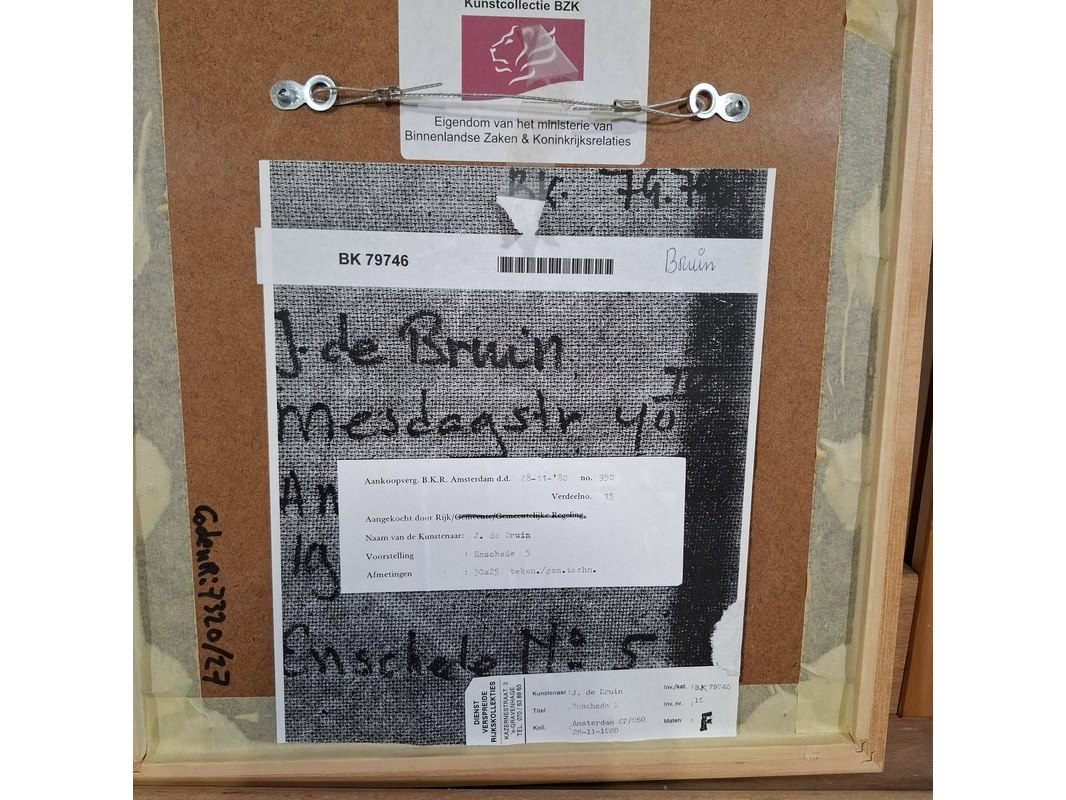 Kunstcollectie BZK
Eigendom van het ministerie van
Binnenlandse Zaken & Koninkrijksrelaties
BK. 79.7
BK 79746
Bruin
J. de Bruin
Mesdagstr 40 II
Am
19
Aankoopverg. B.K.R. Amsterdam d.d. 28-11-'80 no. 950
Verdeelno. 15
Aangekocht door Rijk/Gemeente/Gemeentelijke Regeling.
Naam van de Kunstenaar: J. de Bruin
Voorstelling : Enschede 5
Afmetingen : 30x25 teken./gem.techn.
Enschede No 5
CodenR:7320/27
DIENST
VERSPREIDE
RIJKSKOLLEKTIES
KAZERNESTRAAT 3
's-GRAVENHAGE
TEL. 070/63 89 63
Kunstenaar: J. de Bruin
Titel : Enschede 5
Koll. Amsterdam CP/950
28-11-1980
Inv./kat. : BK 79746
Inv. nr. : 15
Maten :